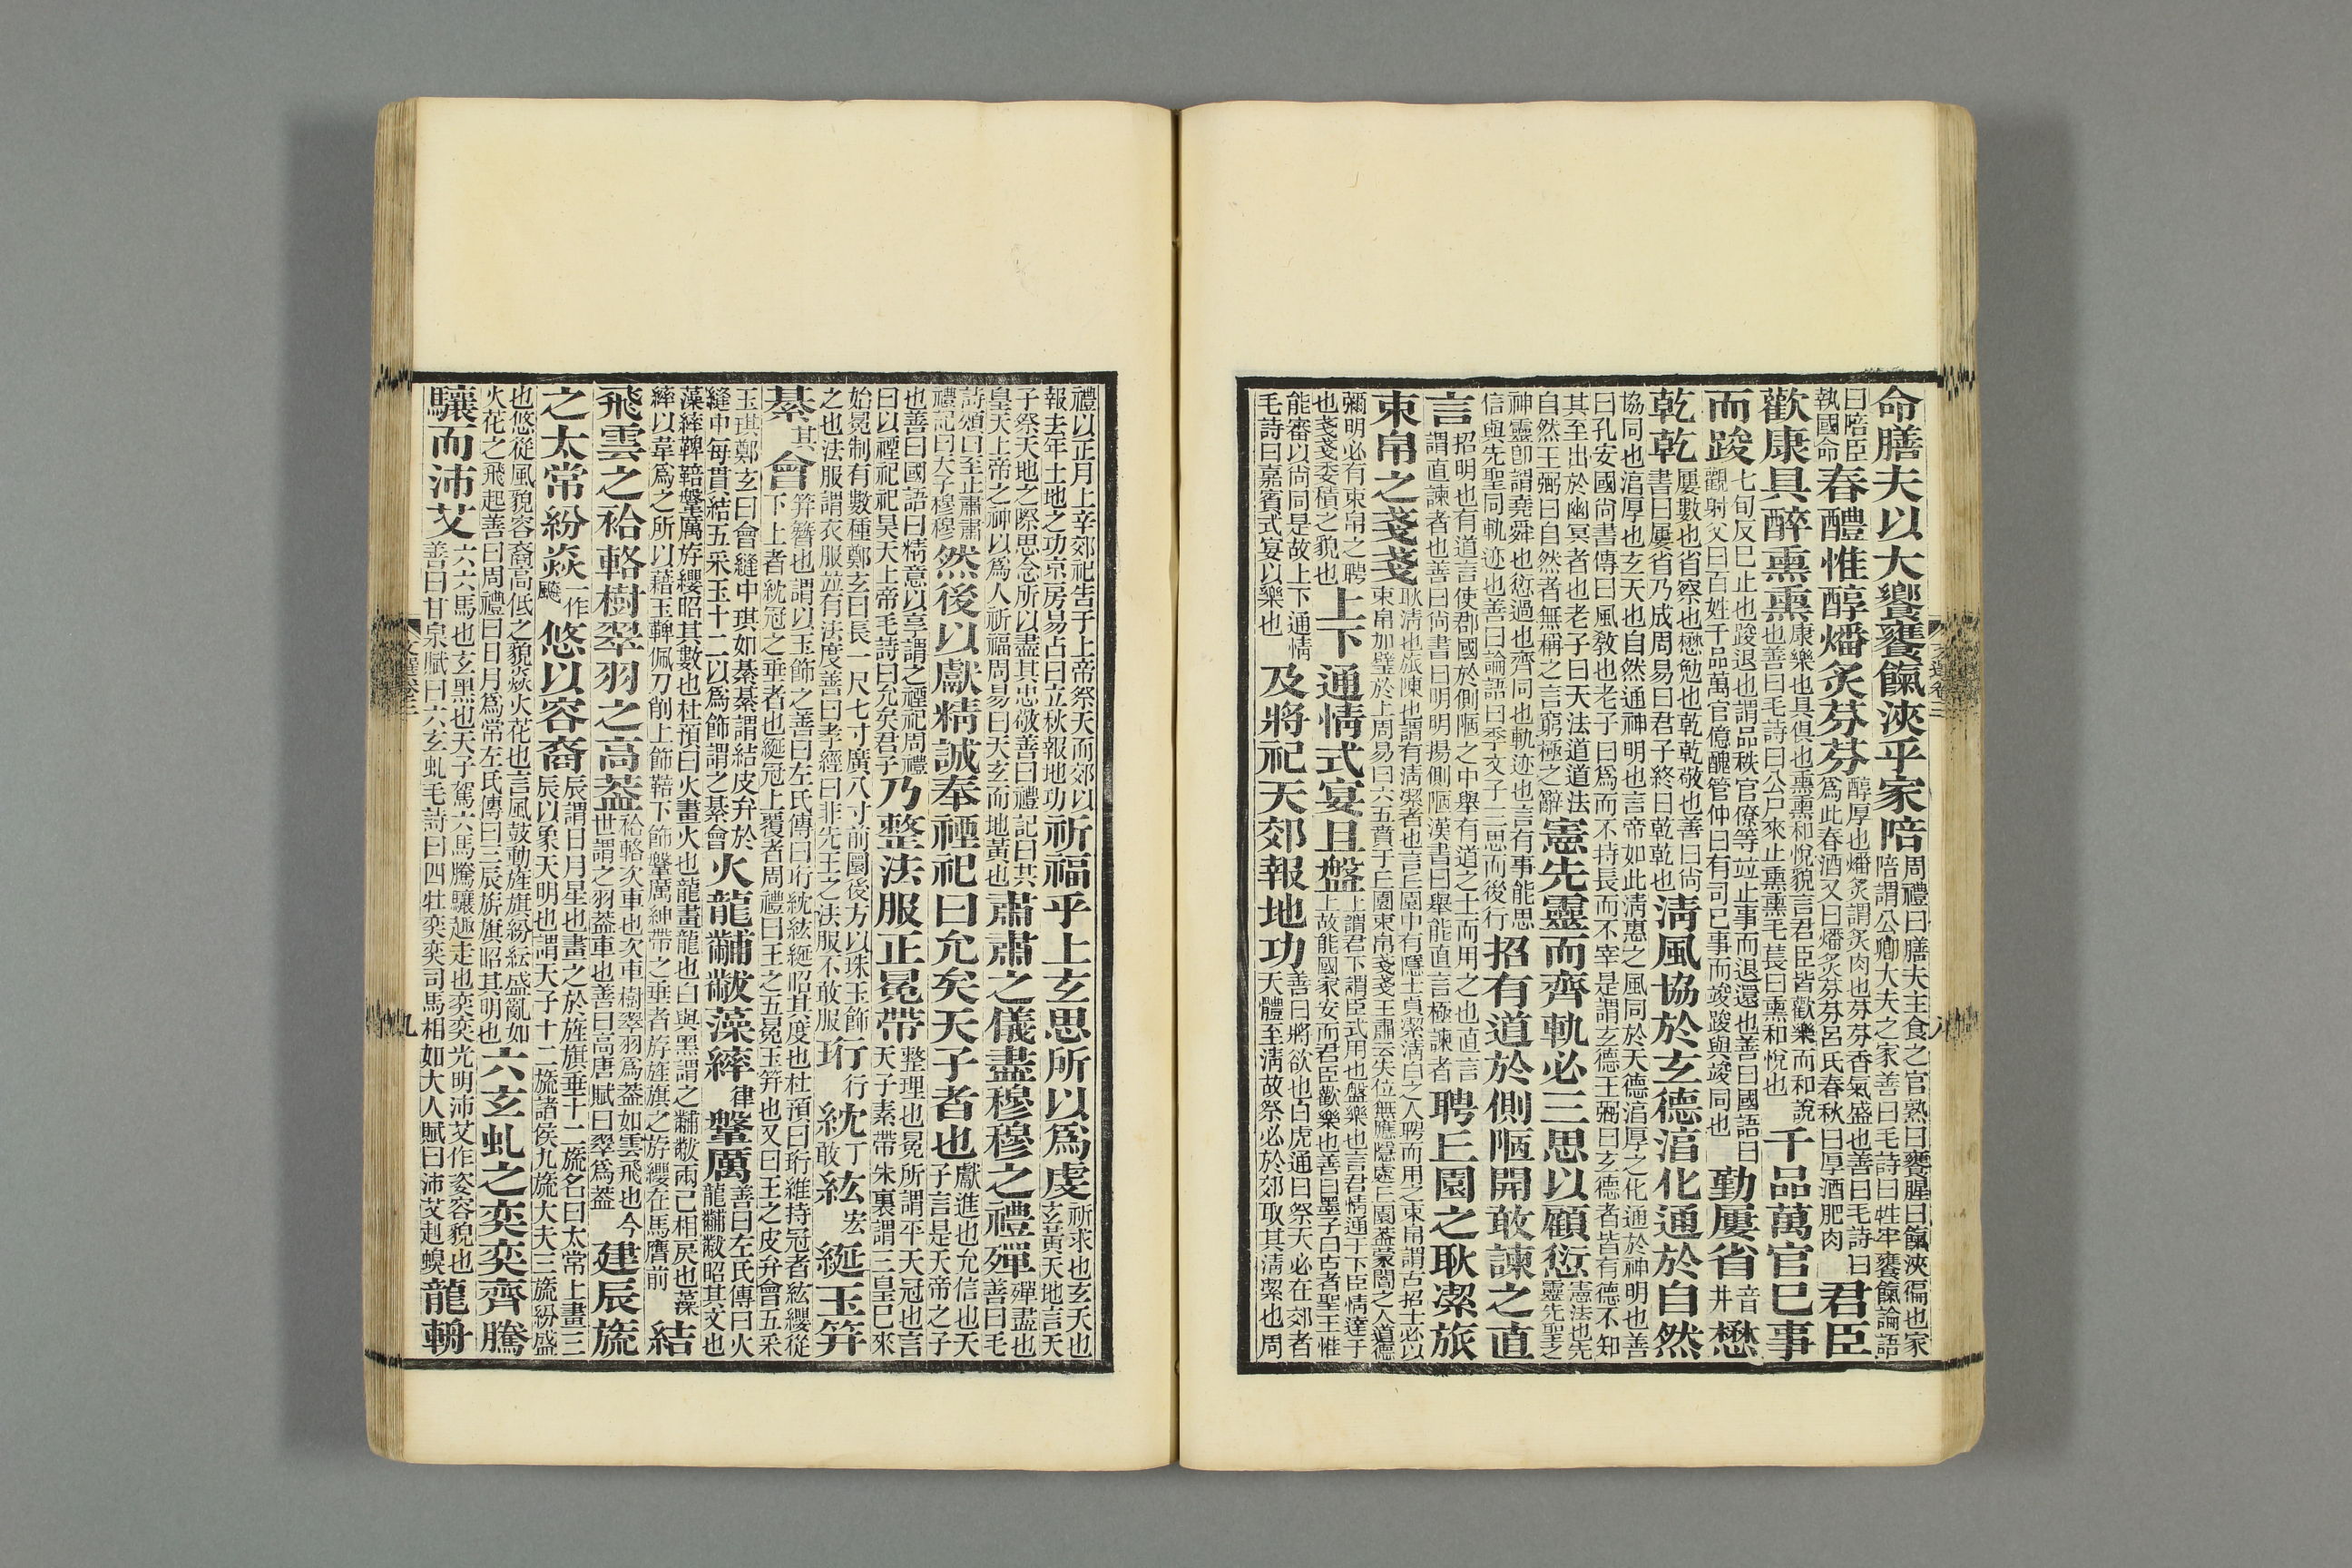 命膳夫以大饗饔餼浹乎家陪周禮曰膳夫主食之官熟曰饔腥曰餼浹徧也家陪謂公卿大夫之家善曰毛詩曰牲牢饔餼論語
曰陪臣執國命春醴惟醇燔炙芬芬醇厚也燔炙謂炙肉也芬芬香氣盛也善曰毛詩曰爲此春酒又曰燔炙芬芬呂氏春秋曰厚酒肥肉君臣
歡康具醉熏熏康樂也具俱也熏熏和悅貌言君臣皆歡樂而和說也善曰毛詩曰公尸來止熏熏毛萇曰熏和悅也千品萬官已事
而踆七旬反已止也踆退也謂品秩官僚等並止事而退還也善曰國語曰觀射父曰百姓千品萬官億醜管仲曰有司已事而竣踆與竣同也勤屢省井音懋
乾乾屢數也省察也懋勉也乾乾敬也善曰尚書曰屢省乃成周易曰君子終日乾乾也淸風協於玄德淳化通於自然
協同也淳厚也玄天也自然通神明也言帝如此淸惠之風同於天德淳厚之化通於神明也善曰孔安國尚書傳曰風敎也老子曰爲而不持長而不宰是謂玄德王弼曰玄德者皆有德不知
其至出於幽冥者也老子曰天法道道法自然王弼曰自然者無稱之言窮極之辭憲先靈而齊軌必三思以顧愆憲法也先靈先聖之
神靈卽謂堯舜也愆過也齊同也軌迹也言有事能思信與先聖同軌迹也善曰論語曰季文子三思而後行招有道於側陋開敢諫之直
言招明也有道言使郡國於側陋之中舉有道之士而用之也直言謂直諫者也善曰尚書曰明明揚側陋漢書曰舉能直言極諫者聘丘園之耿潔旅
束帛之戔戔耿淸也旅陳也謂有淸潔者也言丘園中有隱士貞潔淸白之人聘而用之束帛謂古招士必以束帛加璧於上周易曰六五賁于丘園束帛戔戔王肅云失位無應隱處丘園蓋蒙闇之人道德
彌明必有束帛之聘也戔戔委積之貌也上下通情式宴且盤上謂君下謂臣式用也盤樂也言君情通于下臣情達于上故能國家安而君臣歡樂也善曰墨子曰古者聖王惟
能審以尚同是故上下通情毛詩曰嘉賓式宴以樂也及將祀天郊報地功善曰將欲也白虎通曰祭天必在郊者天體至淸故祭必於郊取其淸潔也周
禮以正月上辛郊祀告于上帝祭天而郊以報去年土地之功京房易占曰立秋報地功祈福乎上玄思所以爲虔祈求也玄天也玄黃天地言天
子祭天地之際思念所以盡其忠敬善曰禮記曰其皇天上帝之神以爲人祈福周易曰天玄而地黃也肅肅之儀盡穆穆之禮殫殫盡也善曰毛
詩頌曰至止肅肅禮記曰天子穆穆然後以獻精誠奉禋祀曰允矣天子者也獻進也允信也天子言是天帝之子
也善曰國語曰精意以享謂之禋祀周禮曰以禋祀祀昊天上帝毛詩曰允矣君子乃整法服正冕帶整理也冕所謂平天冠也言天子素帶朱裏謂三皇已來
始冕制有數種鄭玄曰長一尺七寸廣八寸前圜後方以珠玉飾之也法服謂衣服並有法度善曰孝經曰非先王之法服不敢服珩行紞丁敢紘宏綖玉笄
綦其會笄簪也謂以玉飾之善曰左氏傳曰珩紞紘綖昭其度也杜預曰珩維持冠者紘纓從下上者紞冠之垂者也綖冠上覆者周禮曰王之五冕玉笄也又曰王之皮弁會五采
玉琪鄭玄曰會縫中琪如綦綦謂結皮弁於縫中每貫結五采玉十二以爲飾謂之綦會火龍黼黻藻繂律鞶厲善曰左氏傳曰火龍黼黻昭其文也
藻繂鞞鞛鞶厲斿纓昭其數也杜預曰火畫火也龍畫龍也白與黑謂之黼黻兩己相戾也藻繂以韋爲之所以藉玉鞞佩刀削上飾鞛下飾鞶厲紳帶之垂者斿旌旗之斿纓在馬膺前結
飛雲之袷輅樹翠羽之高蓋袷輅次車也次車樹翠羽爲蓋如雲飛也今世謂之羽蓋車也善曰高唐賦曰翠爲蓋建辰旒
之太常紛焱一作飈悠以容裔辰謂日月星也畫之於旌旗垂十二旒名曰太常上畫三辰以象天明也謂天子十二旒諸侯九旒大夫三旒紛盛
也悠從風貌容裔高低之貌焱火花也言風鼓動旌旗紛紜盛亂如火花之飛起善曰周禮曰日月爲常左氏傳曰三辰旂旗昭其明也六玄虬之奕奕齊騰
驤而沛艾六六馬也玄黑也天子駕六馬騰驤趨走也奕奕光明沛艾作姿容貌也善曰甘泉賦曰六玄虬毛詩曰四牡奕奕司馬相如大人賦曰沛艾赳螑龍輈
文選卷三
八
文選卷三
九